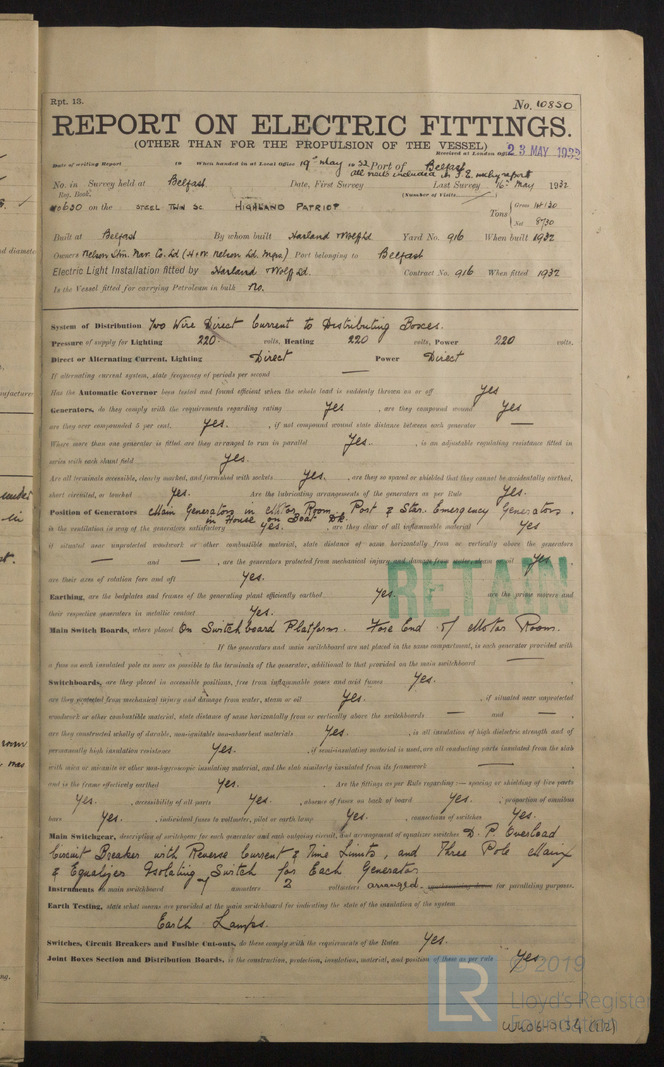 Rpt. 13.
No. 10850
REPORT ON ELECTRIC FITTINGS.
(OTHER THAN FOR THE PROPULSION OF THE VESSEL)
Received at London Office 23 MAY 1932
Date of writing Report 19 When handed in at Local Office 19th May 1932 Port of Belfast
all nails included in F.E. mchy report
No. in Survey held at Belfast. Date, First Survey Last Survey 16th May 1932
Reg. Book. (Number of Visits
on the STEEL TWIN SC HIGHLAND PATRIOT Tons { Gross 14130
Net 8730
Built at Belfast By whom built Harland & Wolff Ld Yard No. 916 When built 1932
Owners Nelson Stm. Nav. Co. Ld (H. & W. Nelson Ld. Mgrs.) Port belonging to Belfast
Electric Light Installation fitted by Harland & Wolff Ld. Contract No. 916 When fitted 1932
Is the Vessel fitted for carrying Petroleum in bulk No.
System of Distribution Two Wire Direct Current to Distributing Boxes.
Pressure of supply for Lighting 220 volts, Heating 220 volts, Power 220 volts.
Direct or Alternating Current, Lighting Direct Power Direct
If alternating current system, state frequency of periods per second —
Has the Automatic Governor been tested and found efficient when the whole load is suddenly thrown on or off Yes
Generators, do they comply with the requirements regarding rating Yes, are they compound wound Yes
are they over compounded 5 per cent. Yes., if not compound wound state distance between each generator —
Where more than one generator is fitted are they arranged to run in parallel Yes., is an adjustable regulating resistance fitted in
series with each shunt field Yes.
Are all terminals accessible, clearly marked, and furnished with sockets Yes., are they so spaced or shielded that they cannot be accidentally earthed,
short circuited, or touched Yes. Are the lubricating arrangements of the generators as per Rule Yes.
Position of Generators Main Generators in Motor Room, Port & Star. Emergency Generators.
in House on Boat Dk.
is the ventilation in way of the generators satisfactory Yes., are they clear of all inflammable material Yes
if situated near unprotected woodwork or other combustible material, state distance of same horizontally from or vertically above the generators
— and —, are the generators protected from mechanical injury and damage from water, steam or oil Yes.
are their axes of rotation fore and aft Yes.
RETAIN
Earthing, are the bedplates and frames of the generating plant efficiently earthed Yes. are the prime movers and
their respective generators in metallic contact Yes.
Main Switch Boards, where placed On Switchboard Platform. Fore End of Motor Room.
If the generators and main switchboard are not placed in the same compartment, is each generator provided with
a fuse on each insulated pole as near as possible to the terminals of the generator, additional to that provided on the main switchboard —
Switchboards, are they placed in accessible positions, free from inflammable gases and acid fumes Yes.
are they protected from mechanical injury and damage from water, steam or oil Yes., if situated near unprotected
woodwork or other combustible material, state distance of same horizontally from or vertically above the switchboards — and —,
are they constructed wholly of durable, non-ignitable non-absorbent materials Yes., is all insulation of high dielectric strength and of
permanently high insulation resistance Yes., if semi-insulating material is used, are all conducting parts insulated from the slab
with mica or micanite or other non-hygroscopic insulating material, and the slab similarly insulated from its framework —
and is the frame effectively earthed Yes. Are the fittings as per Rule regarding:— spacing or shielding of live parts
Yes., accessibility of all parts Yes., absence of fuses on back of board Yes., proportion of omnibus
bars Yes., individual fuses to voltmeter, pilot or earth lamp Yes., connections of switches Yes.
Main Switchgear, description of switchgear for each generator and each outgoing circuit, and arrangement of equalizer switches D. P. Overload
Circuit Breaker with Reverse Current & Time Limits, and Three Pole Main
& Equalizer Isolating Switch for Each Generator
Instruments on main switchboard ammeters 2 voltmeters arranged. for paralleling purposes.
Earth Testing, state what means are provided at the main switchboard for indicating the state of the insulation of the system
Earth Lamps.
Switches, Circuit Breakers and Fusible Cut-outs, do these comply with the requirements of the Rules Yes.
Joint Boxes Section and Distribution Boards, is the construction, protection, insulation, material, and position of these as per rule Yes
LR © 2019
Lloyd's Register
Foundation
W406-0134 (1/2)